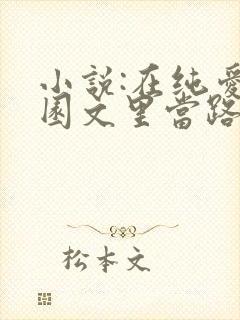 小說:在純愛
園文里當路
松本文